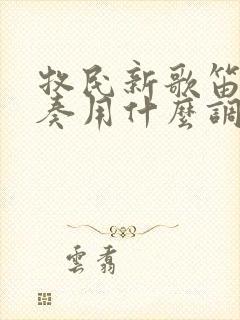 牧民新歌笛
奏用什麼調
雲翥